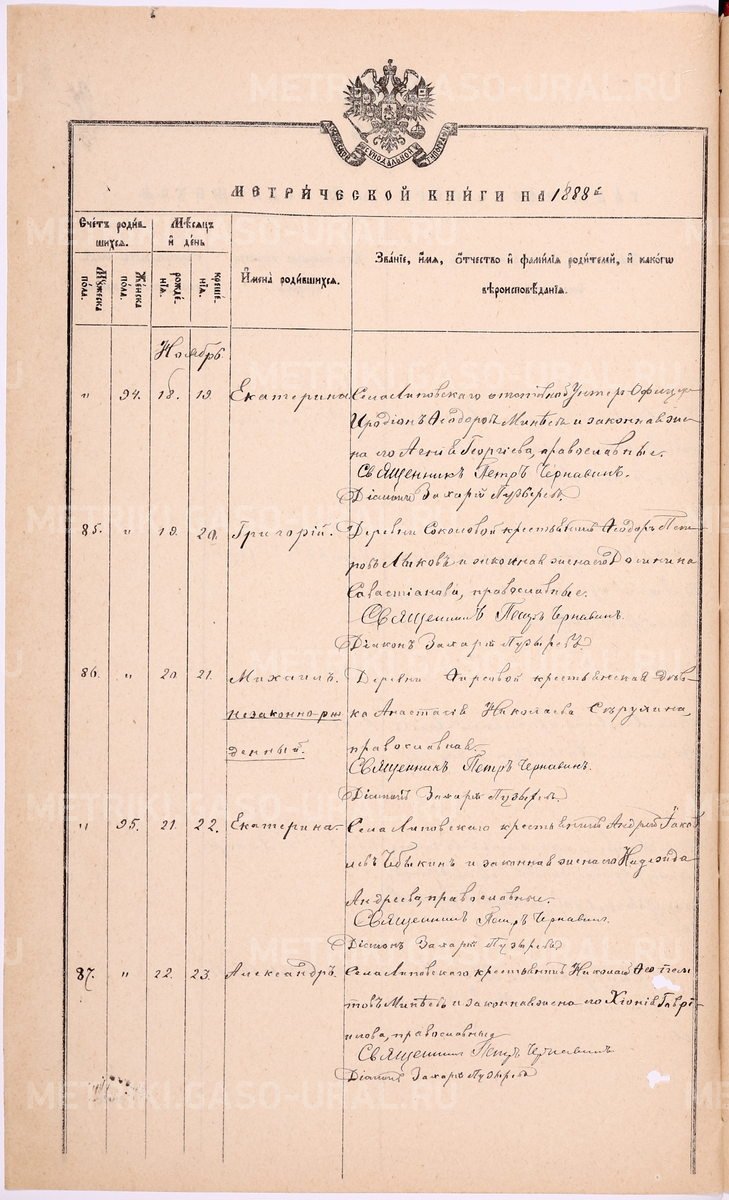 МЕТРИ́ЧЕСКОЙ КНИ́ГИ НА 1888 г.
Сче́тъ роди́в
шихся.
Мѣсяцъ
и́ де́нь
Му́жеска
по́ла.
Же́нска
по́ла.
рожде́
нія.
креще́
нія.
И҆мена̀ роди́вшихся.
Зва́ніе, и́мя, о́тчество и҆ фами́лія роди́телей, и҆ како́гѡ
вѣроисповѣ́данія.
Ноябрь
" 94. 18. 19. Екатерина Села Липовскаго отставной Унтер-Офицер
Иродіонъ Ѳеодоровъ Минѣевъ и законная же-
на его Георгіева, православные.
Священникъ Петръ Чернавинъ.
Діаконъ Захарій Пузыревъ
85. " 19. 20. Григорій. Деревни Соколовой крестьянинъ Ѳеодоръ Пет-
ровъ Лыковъ и законная жена его
Савастіанова, православные.
Священникъ Петръ Чернавинъ.
Діаконъ Захарій Пузыревъ
86. " 20 21. Михаилъ. Деревни Фирсовой крестьянская дѣв-
незаконно-рож
ка Анастасія Николаева
денный.
православная.
Священникъ Петръ Чернавинъ.
Діаконъ Захарій Пузыревъ.
" 95. 21. 22. Екатерина Села Липовскаго крестьянинъ Андрей Іаков
левъ Чебыкинъ и законная жена его Надежда
Андреева, православные.
Священникъ Петръ Чернавинъ.
Діаконъ Захарій Пузыревъ
87. " 22. 23. Александръ. Села Липовскаго крестьянинъ Николай Ѳеоктис
товъ Минѣевъ и законная жена его Хіонія Гаврі-
илова, православные
Священникъ Петръ Чернавинъ
Діаконъ Захарій Пузыревъ
METRIKI.GASO-URAL.RU